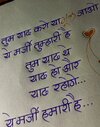 तुम याद करो या भूल जाओ
ये मर्जी तुम्हारी है
तुम याद थे
याद हो और
याद रहोगे...
ये मर्जी हमारी है...